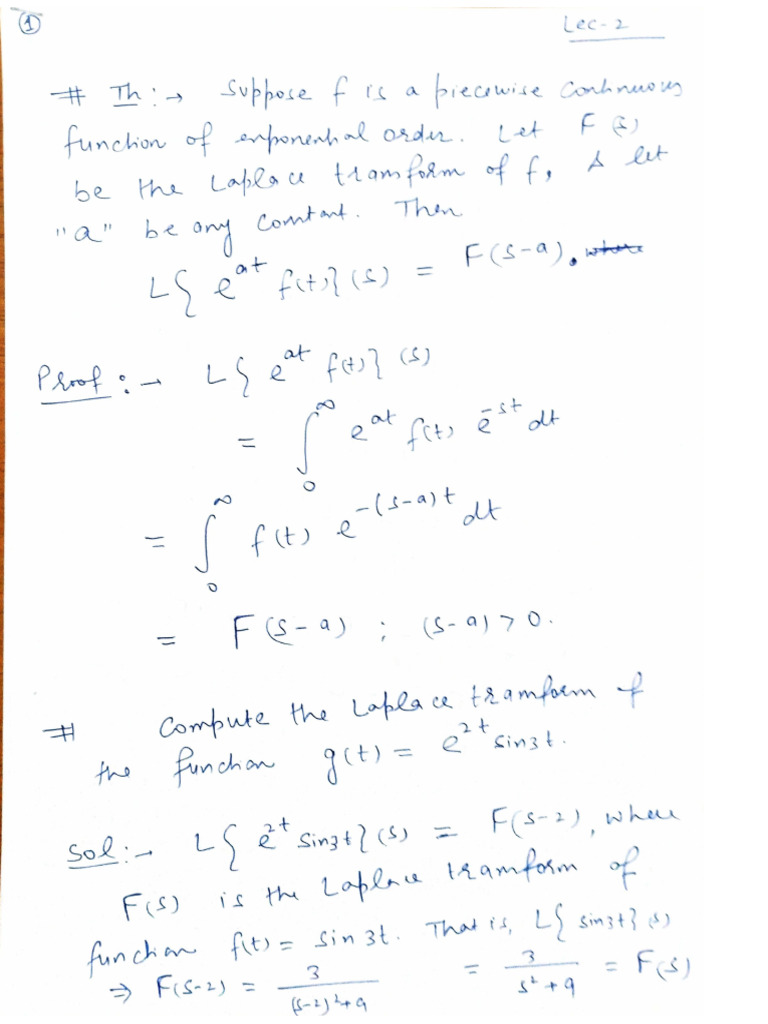 ① Lec-2
# Th :→ Suppose f is a piecewise continuous
function of exponential order. Let F(s)
be the Laplace transform of f, & let
"a" be any constant. Then
L{e^{at} f(t)}(s) = F(s-a), where
Proof :→ L{e^{at} f(t)}(s)
= ∫_0^∞ e^{at} f(t) e^{-st} dt
= ∫_0^∞ f(t) e^{-(s-a)t} dt
= F(s-a) ; (s-a) > 0.
# Compute the Laplace transform of
the function g(t) = e^{2t} sin3t.
Sol :→ L{e^{2t} sin3t}(s) = F(s-2), where
F(s) is the Laplace transform of
function f(t) = sin 3t. That is, L{sin3t}(s)
⇒ F(s-2) = 3/((s-2)^2+9) = 3/(s^2+9) = F(s)